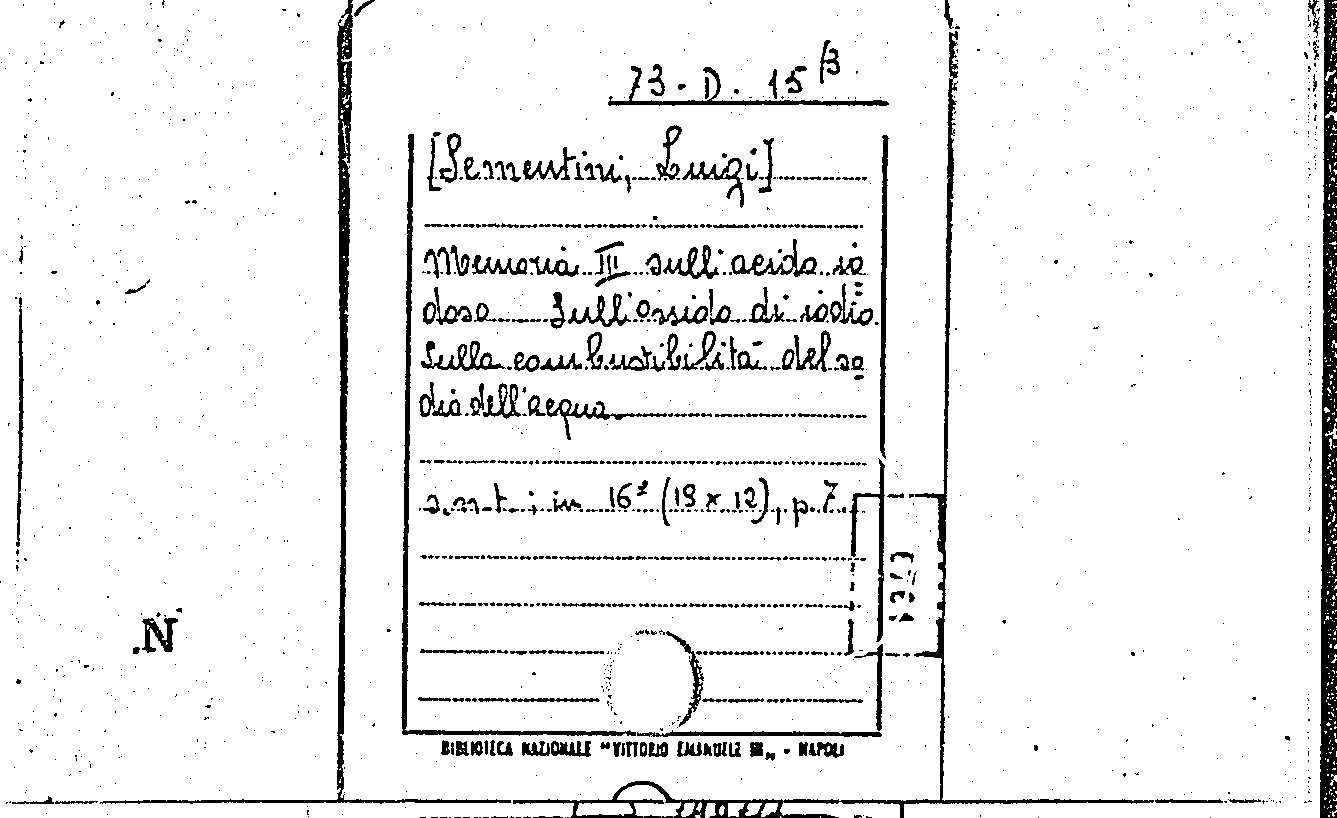 73. D. 15 /3
[Sementini, Luigi]
Memoria III sull'acido io=
doso. Sull'ossido di iodio.
Sulla combustibilità del so=
dio dell'acqua.
s.n.t.; in 16º (19 x 12), p. 7.
N.
BIBLIOTECA NAZIONALE "VITTORIO EMANUELE III„ - NAPOLI